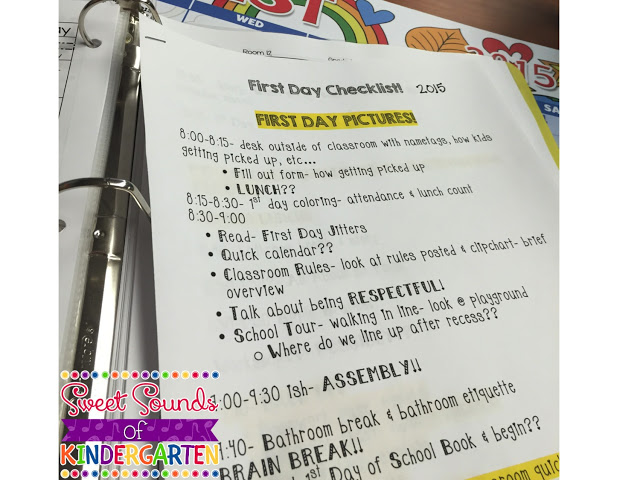 WED
Room 12
First Day Checklist! 2015
FIRST DAY PICTURES!
8:00-8:15- desk outside of classroom with nametags, how kids
getting picked up, etc...
• Fill out form- how getting picked up
• LUNCH??
8:15-8:30- 1st day coloring- attendance & lunch count
8:30-9:00
• Read- First Day Jitters
• Quick calendar??
• Classroom Rules- look at rules posted & clipchart- brief
overview
• Talk about being RESPECTFUL!
• School Tour- walking in line- look @ playground
o Where do we line up after recess??
:00-9:30 ish- ASSEMBLY!!
:40- Bathroom break & bathroom etiquette
BRAIN BREAK!!
1st Day of School Book & begin??
2015
Sweet Sounds
of
KINDERGARTEN